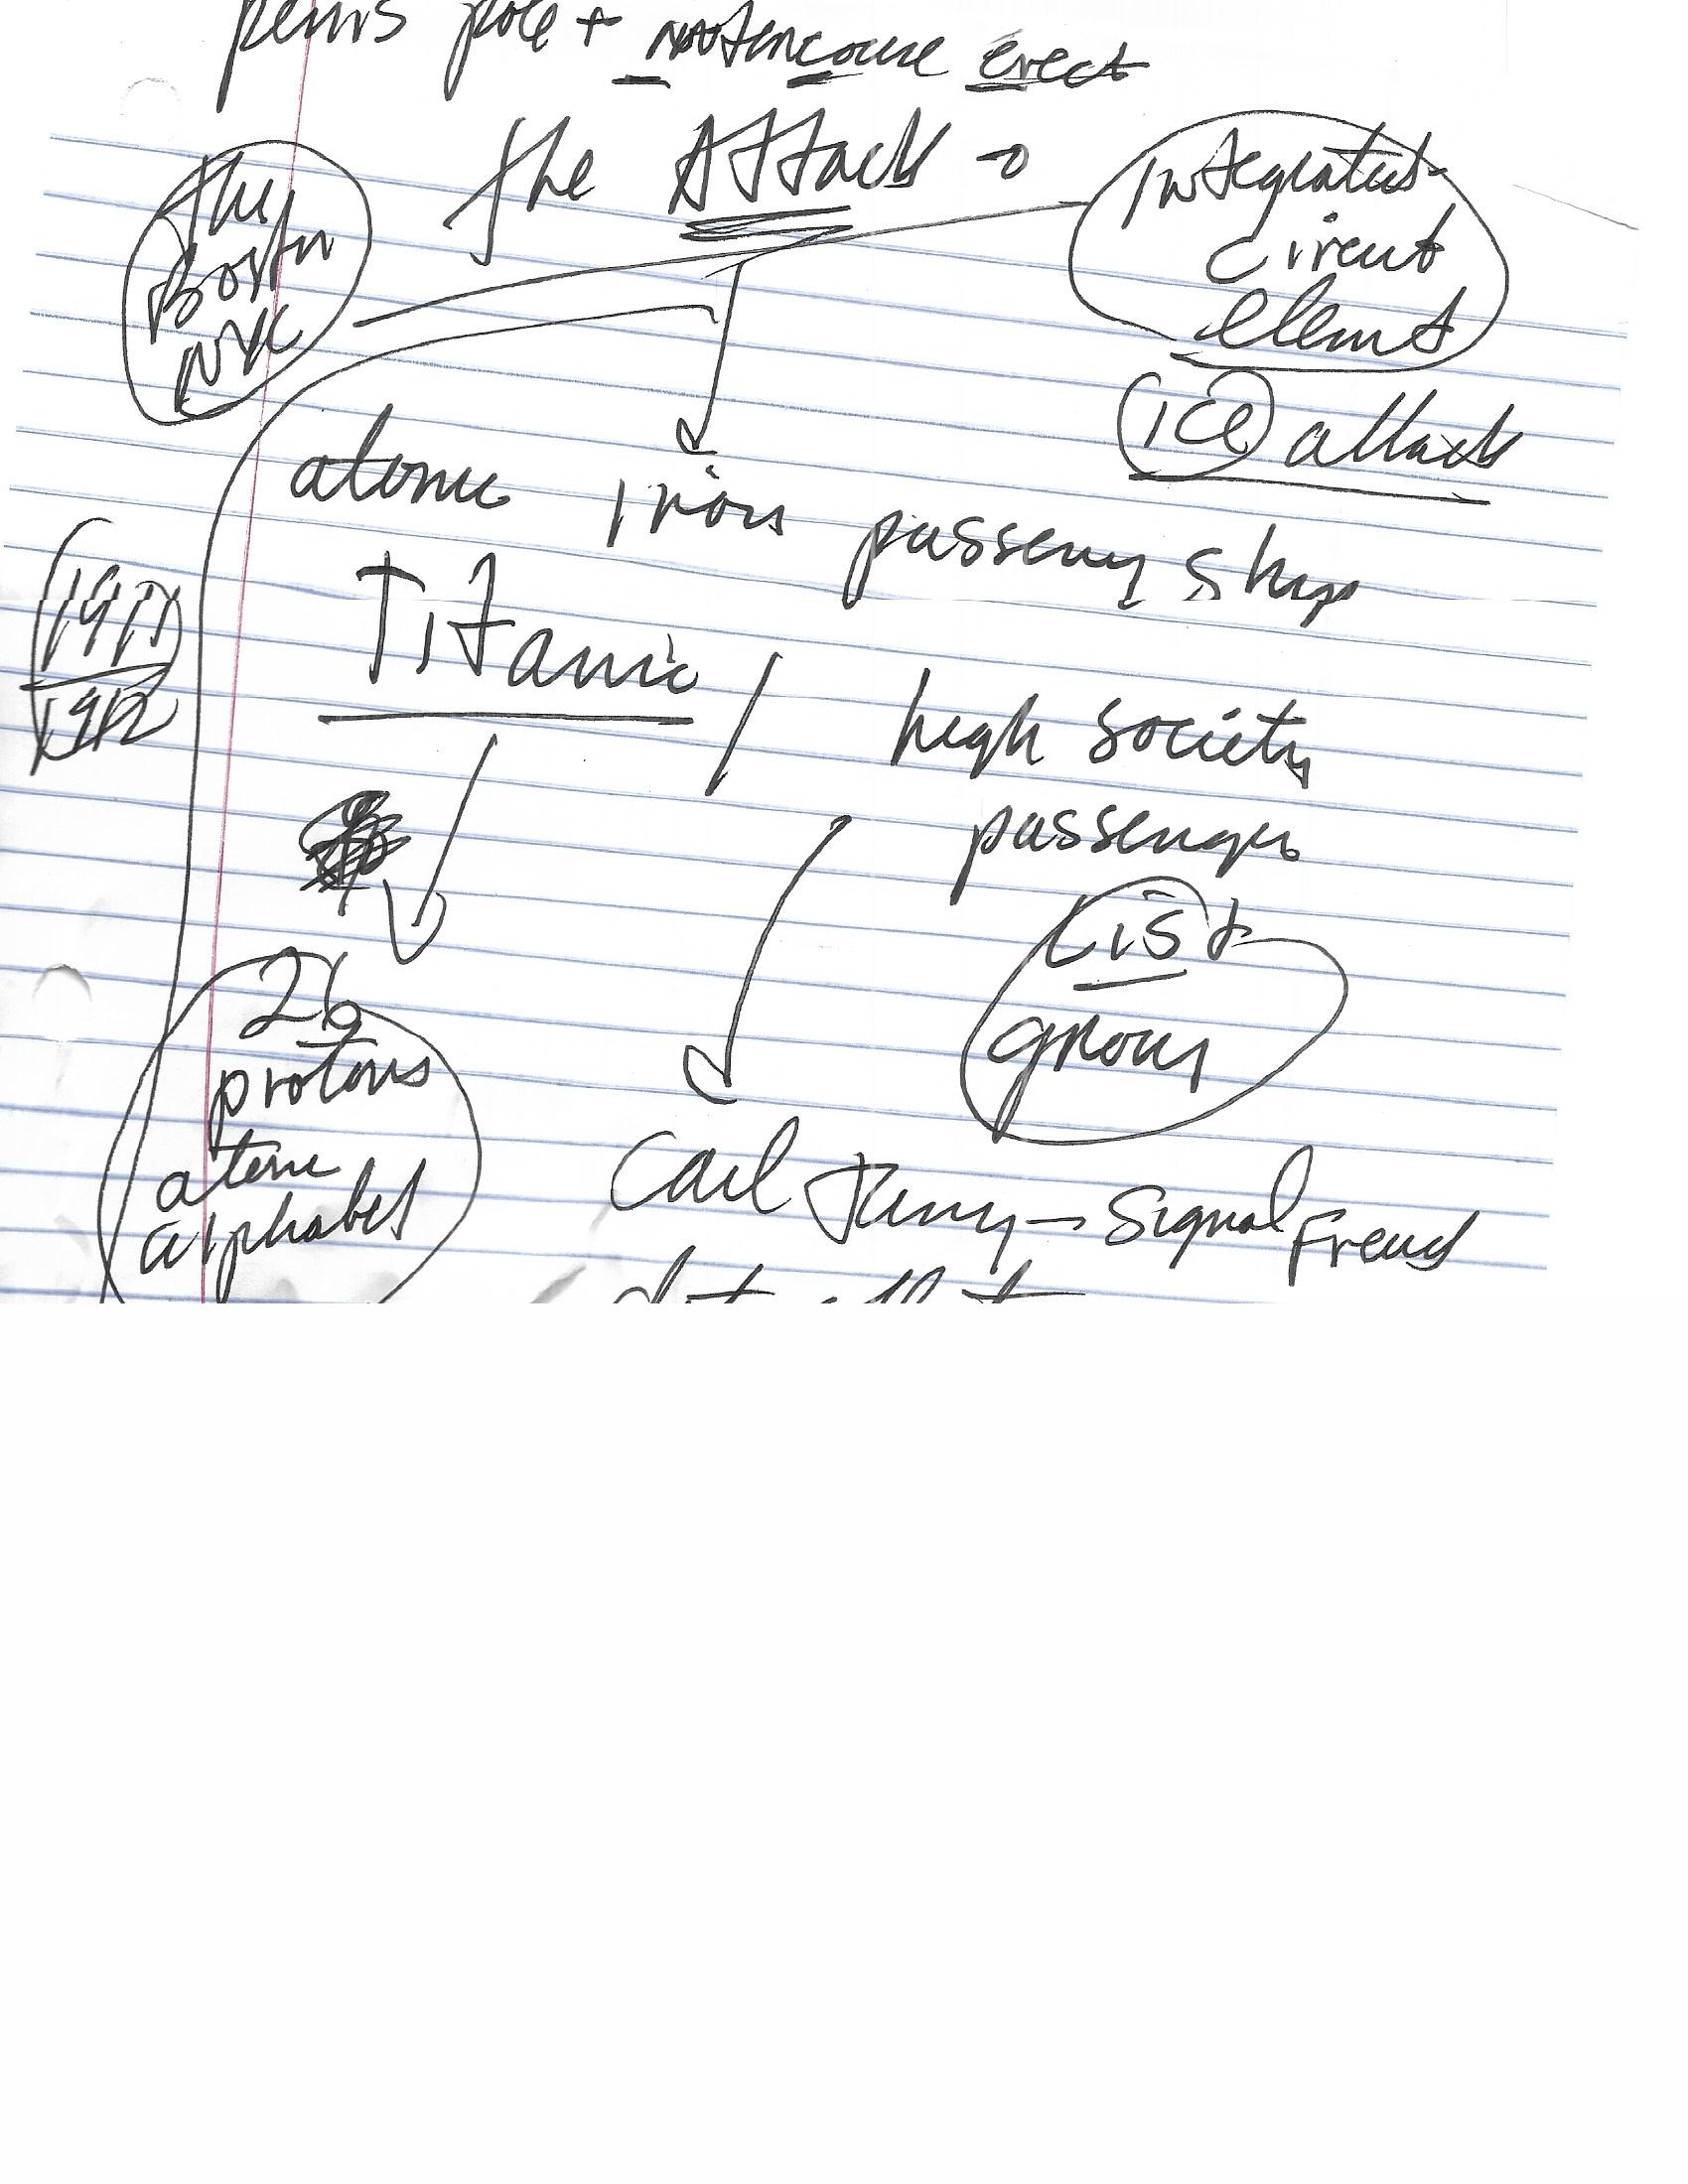 penis pole +
erect
the Attack →
Integrated
circuit
the
Boston
ice attack
atomic iron passeng ship
1911
1912
Titanic / high society
passengers
List
26
protons
atomic
alphabet
Carl Jung - Signal Freud